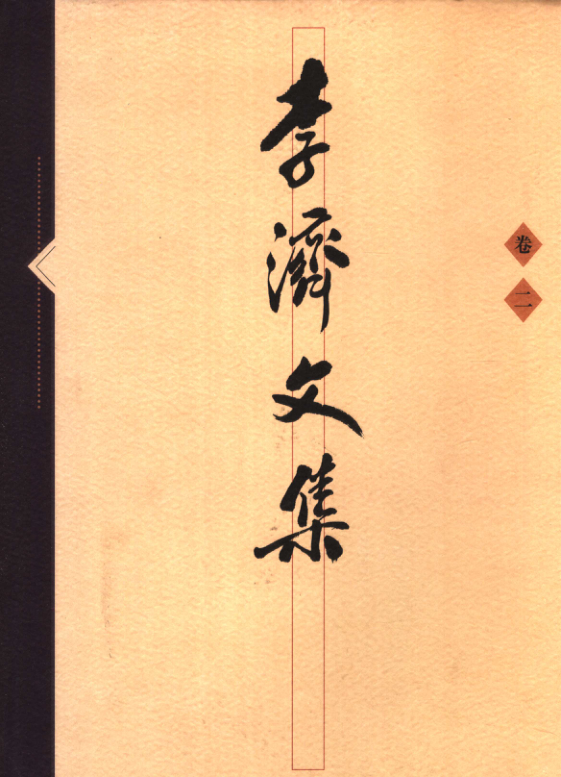 李濟文集
卷二